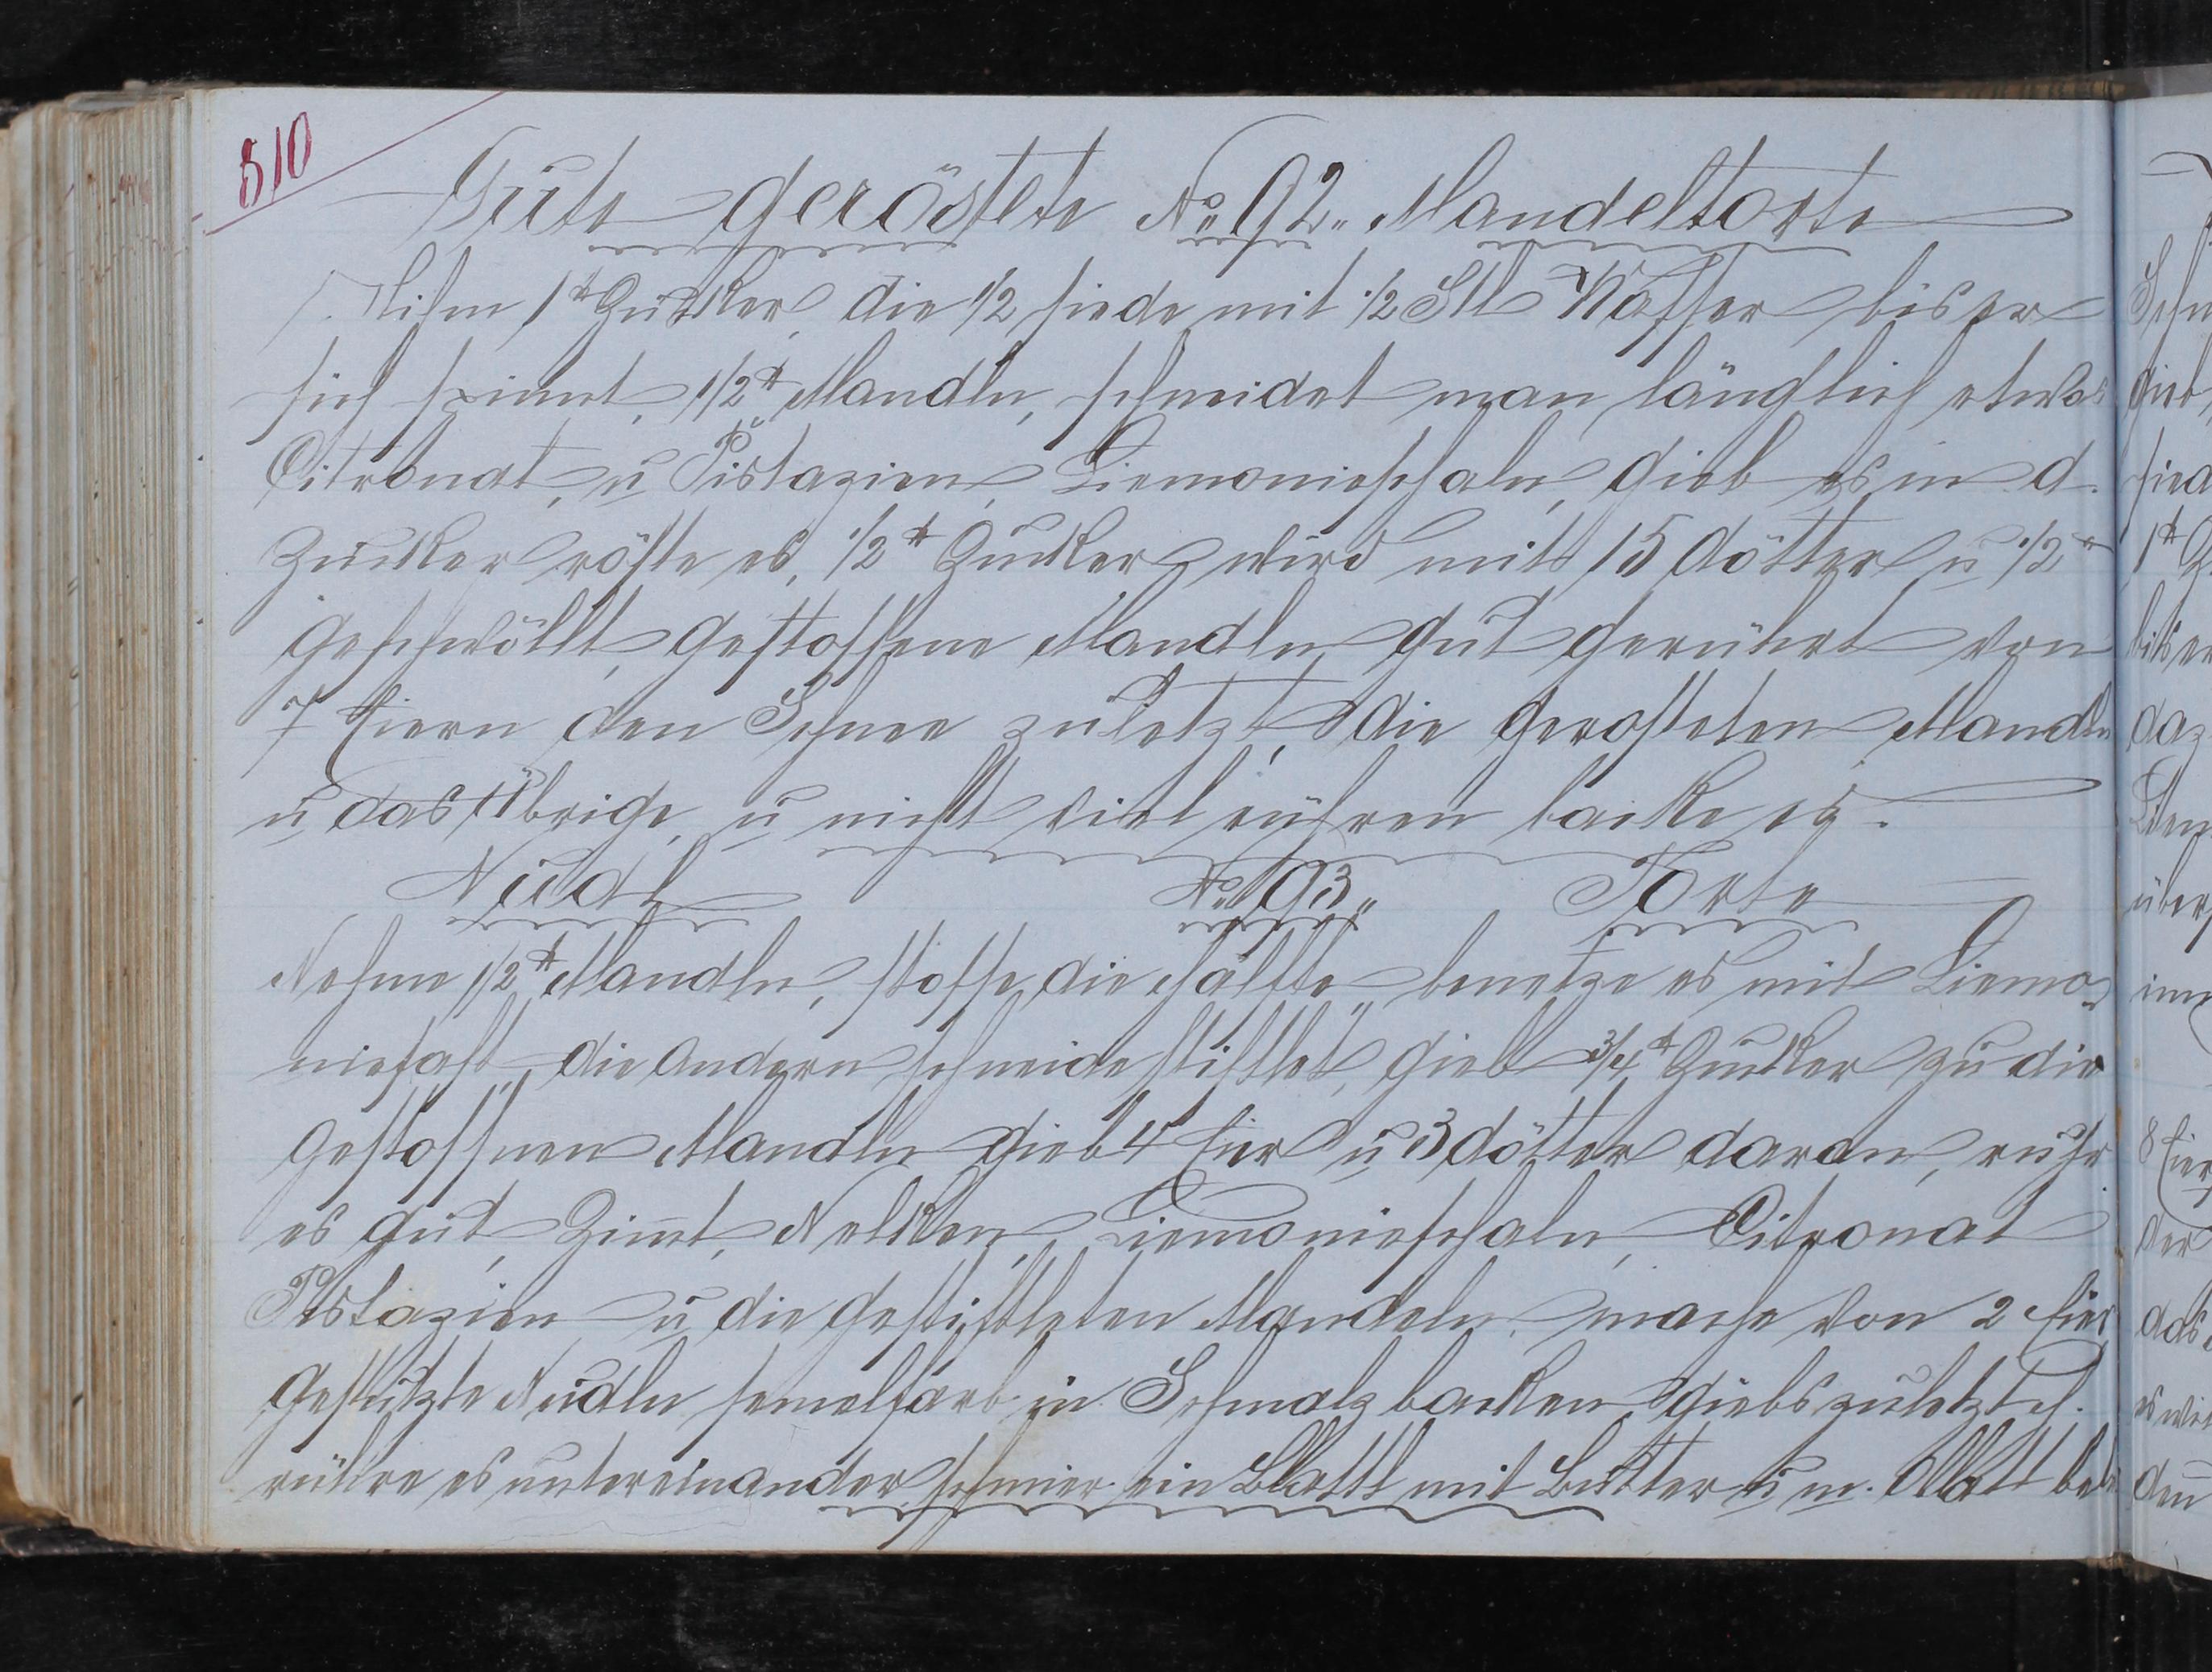 510
Gute geröstete No 92. Mandeltorte
Nihm 1 ℔ Zucker, die 1/2 siede mit 1/2 Stl Wasser bis er
sich spinnt, 1/2 ℔ Mandln, schneidet man länglich etwas
Citronat, u Pistazien, Liemonieschaln, gieb es in d.
Zucker röste es, 1/2 ℔ Zucker wird mit 15 Dötter u 1/2 ℔
geschwöllt, gestossene Mandln gut gerührt von
7 Eiern den Schnee zuletzt, die gerösteten Mandln
u das Übrige, u nicht viel rühren backe es.
Nudl No 93 Torte
Nehme 1/2 ℔ Mandln, stosse die Hälfte, benetze es mit Liemo-
niesaft, die Andern schneide stiftlet, gieb 3/4 ℔ Zucker zu die
gestossnen Mandln gieb 4 Eier u 3 dötter daran, rühr
es gut, Zimt, Nelken, Liemonieschaln, Citronat
Pistazien u die gestiftleten Mandeln, mache von 2 Eier
gestutzte Nudln semelfarb in Schmalz backen giebs zuletzt h.
rühre es untereinander schmier ein Blattl mit Butter u m. Oblatt bel